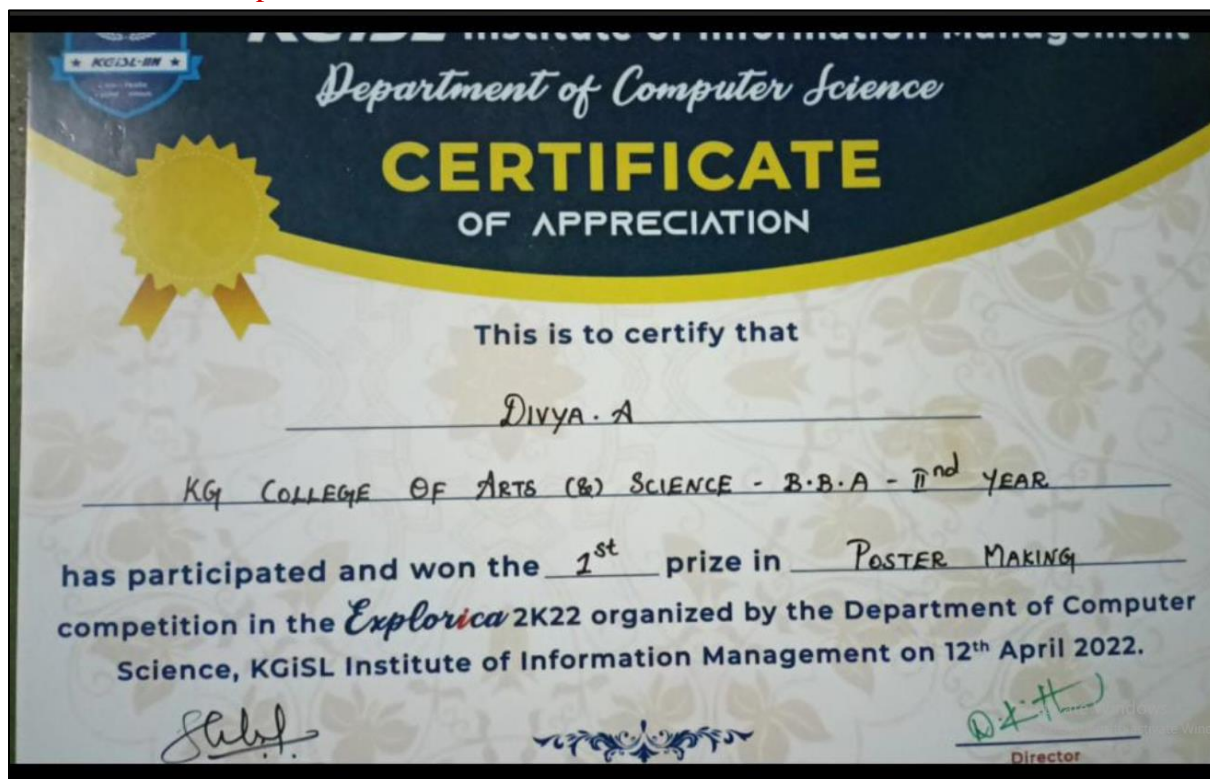 KGiSL Institute of Information Management
★ KGiSL-IIM ★
Department of Computer Science
CERTIFICATE
OF APPRECIATION
This is to certify that
DIVYA. A
KG COLLEGE OF ARTS (&) SCIENCE - B.B.A - IInd YEAR
has participated and won the 1st prize in POSTER MAKING
competition in the Explorica 2K22 organized by the Department of Computer
Science, KGiSL Institute of Information Management on 12th April 2022.
Director